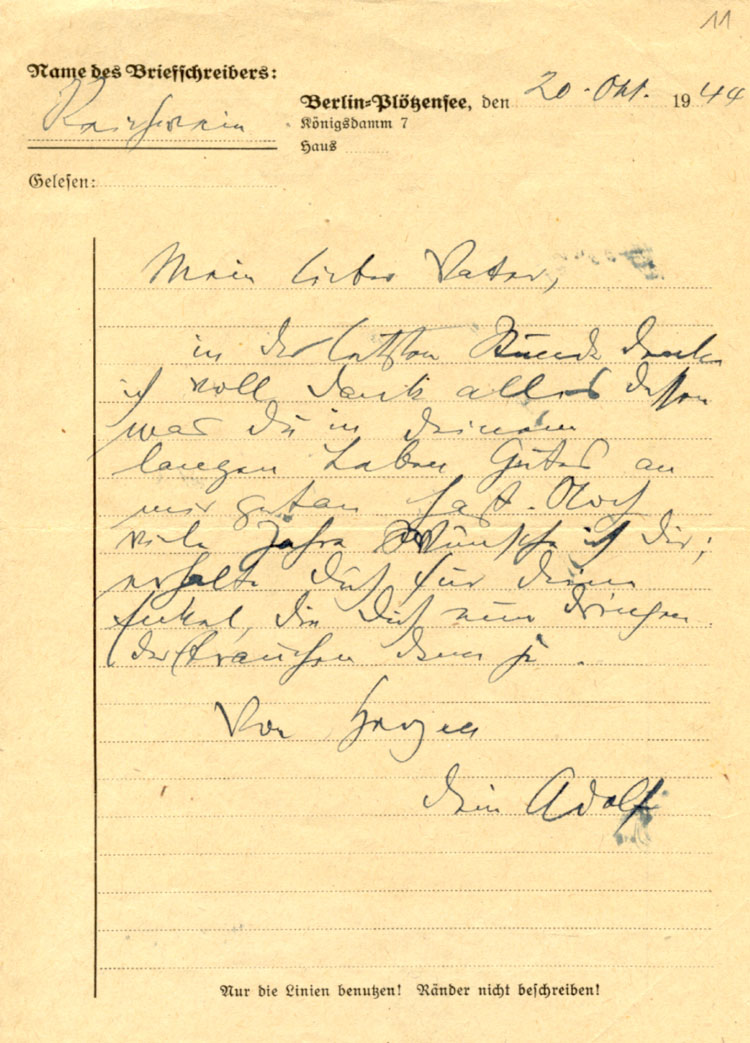 11
Name des Briefschreibers:
Reichwein
Berlin-Plötzensee, den 20. Okt. 1944
Königsdamm 7
Haus
Gelesen:
Mein lieber Vater,
in der letzten Stunde denke
ich voll Dank alles dessen
was Du in Deinem
langen Leben Gutes an
mir getan hast. Noch
viele Jahre wünsche ich Dir;
erhalte Dich für Deine
Enkel, die Dich nun dringen
der brauchen denn je.
Von Herzen
Dein Adolf
Nur die Linien benutzen! Ränder nicht beschreiben!